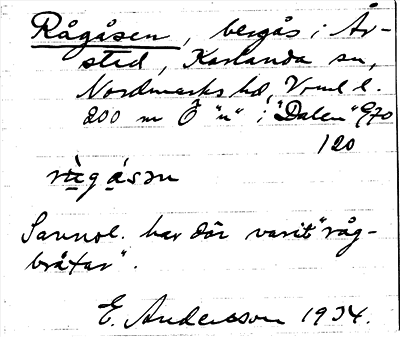 Rågåsen, bergås i År-
sted, Karlanda sn,
Nordmarks hd, Vrml l.
200 m Ö "n" i "Dalen" G70
120
rù̀gåsən
Sannol. har där varit "råg-
bråtar".
E. Andersson 1934.